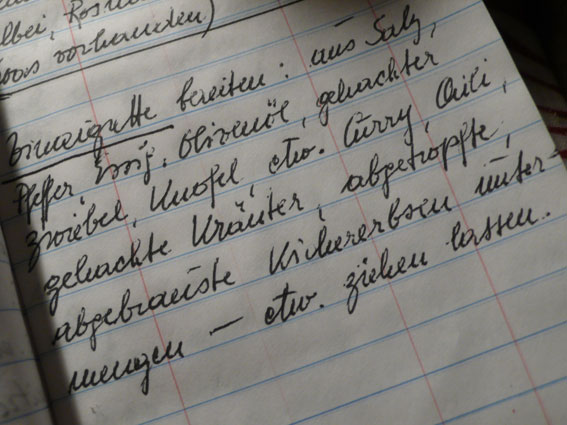 lbei, Rosm
was vorhanden)
Vinaigrette bereiten: aus Salz,
Pfeffer, Essig, Olivenöl, gehackter
Zwiebel, Knofel, etw. Curry, Chili,
gehackte Kräuter, abgetropfte,
abgebrauste Kichererbsen unter-
mengen – etw. ziehen lassen.